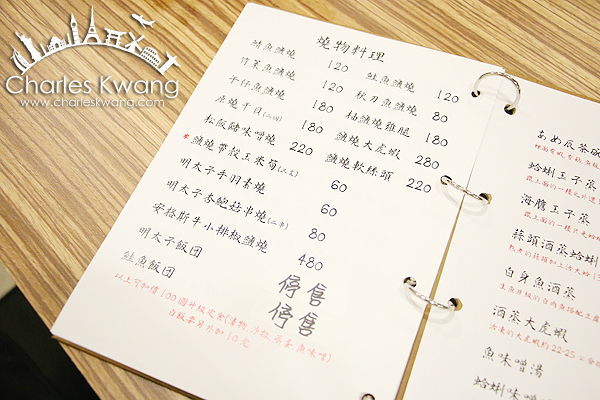 Charles Kwang
www.charleskwang.com
燒物料理
鯖魚鹽燒 120
鮭魚鹽燒 120
竹筴魚鹽燒 120
秋刀魚鹽燒 80
午仔魚鹽燒 180
柚鹽燒雞腿 180
180
鹽燒大虎蝦 280
松阪豬味噌燒 220
鹽燒軟絲頭 220
*鹽燒帶殼玉米筍(三支) 60
明太子手羽素燒 60
明太子杏鮑菇串燒(二串) 80
安格斯牛小排椒鹽燒 480
明太子飯団 停售
鮭魚飯団 停售
以上可加價100圓升級定食(漬物.沙拉.蒸蛋.魚味噌)
白飯單月外加10元
あめ
蛤蜊玉子蒸
海膽玉子蒸
蒜頭酒蒸蛤蜊
白身魚酒蒸
酒蒸大虎蝦
魚味噌湯
蛤蜊味噌